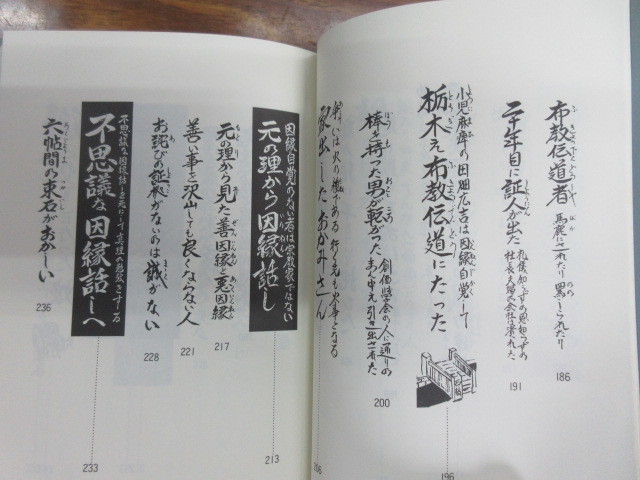 布教伝道者
馬鹿にされたり罵しられたり
186
二十年目に証人が出た
礼儀知らずの恩知らずの
社長夫婦で会社は潰れた
191
小児麻痺の田畑広吉は因縁自覚して
栃木え布教伝道にたった
196
棒を持った男が転がった
創価学会の人に通りの
まん中え引き出された
200
出したおかみさん
嫁いは火の艦である 行く先も火事となる
206
因縁自覚のない者は宗教家ではない
元の理から因縁話し
213
元の理から見た善因縁と悪因縁
217
善い事を沢山しても良くならない人
221
お詫びの証拠がないのは誠がない
228
不思議な因縁話を元にして真理の思案をする
不思議な因縁話しへ
233
六帖間の束石がおかしい
236